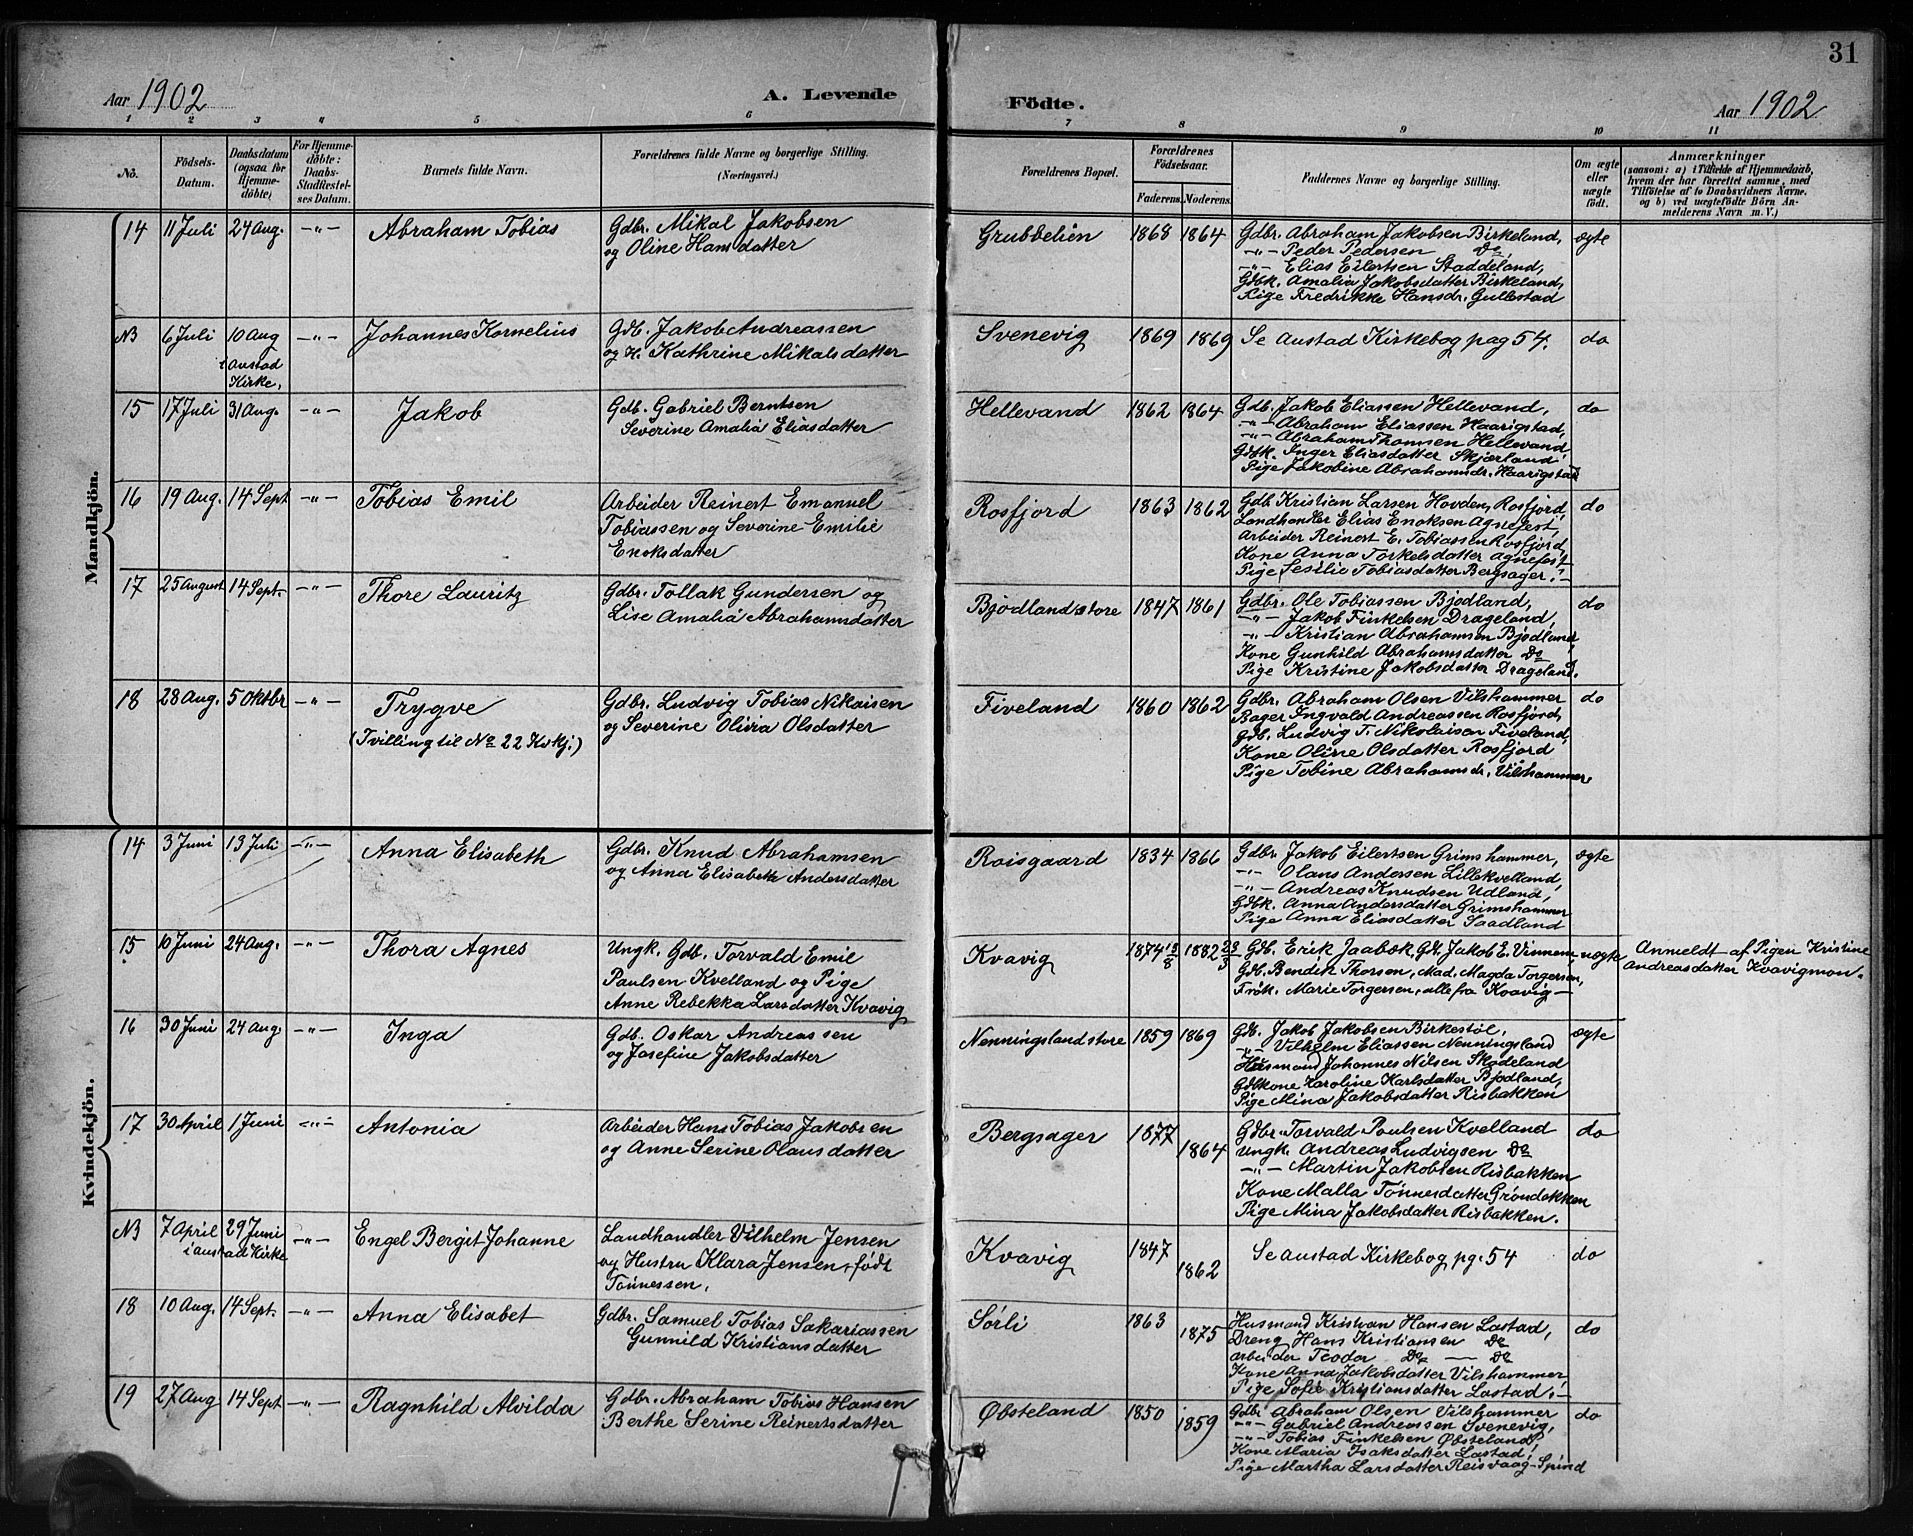 31
Aar 1902
A. Levende
Födte.
Aar 1902
1 2 3 4 5 6 7 8 9 10 11
No.
Födsels-
Datum.
Daabsdatum
(ogsaa for
Hjemme-
döbte)
For Hjemme-
döbte:
Daabs-
Stadfæstel-
ses Datum.
Barnets fulde Navn.
Forældrenes fulde Navne og borgerlige Stilling.
(Næringsvei.)
Forældrenes Bopæl.
Forældrenes
Födselsaar.
Faderens. Moderens.
Faddernes Navne og borgerlige Stilling.
Om ægte
eller
uægte
födt.
Anmærkninger
(saasom: a) i Tilfælde af Hjemmedaab,
hvem der har forrettet samme, med
Tilföielse af to Daabsvidners Navne,
og b) ved uægtefödte Börn An-
melderens Navn m. V.)
Mandkjön.
14 11 Juli 24 Aug. -"- Abraham Tobias
Gdbr. Mikal Jakobsen
og Oline Hansdatter
Grubbelien 1868 1864
Gdbr. Abraham Jakobsen Birkeland,
-"- Peder Pedersen Do
-"- Elias Eilertsen Staddeland,
Gdbk. Amalia Jakobsdatter Birkeland,
Pige Fredrikke Hansdr. Gullestad
ægte
NB 6 Juli 10 Aug
i Austad
Kirke,
-"- Johannes Kornelius
Gdb. Jakob Andreassen
og H. Kathrine Mikalsdatter
Svenevig 1869 1869 Se Austad Kirkebog pag 54. do
15 17 Juli 31 Aug. -"- Jakob
Gdb. Gabriel Berntsen
Severine Amalia Eliasdatter
Hellevand 1862 1864
Gdb. Jakob Eliassen Hellevand,
-"- Abraham Eliassen Haarigstad,
-"- Abraham Thomsen Hellevand
Gdbk. Inger Eliasdatter Skjærland
Pige Jakobine Abrahamdr. Haarigstad
do
16 19 Aug. 14 Sept -"- Tobias Emil
Arbeider Reinert Emanuel
Tobiassen og Severine Emilie
Enoksdatter
Rosfjord 1863 1862
Gdb. Kristian Larsen Hovden, Rosfjord,
Landhandler Elias Enoksen Agnefest
Arbeider Reinert E. Tobiassen Rosfjord,
Kone Anna Torkelsdatter Agnefest
Pige Sesilie Tobiasdatter Bergsager.-
do
17 25 August 14 Sept. -"- Thore Lauritz
Gdbr. Tollak Gundersen og
Lise Amalia Abrahamsdatter
Bjodland store 1847 1861
Gdbr. Ole Tobiassen Bjodland,
-"- Jakob Finkelsen Drageland,
-"- Kristian Abrahamsen Bjodland
Kone Gunhild Abrahamsdatter Do
Pige Kristine Jakobsdatter Drageland.
do
18 28 Aug. 5 Oktbr -"- Trygve
(Tvilling til No 22 Kvkj.)
Gdbr. Ludvig Tobias Nikaisen
og Severine Olivia Olsdatter
Fiveland 1860 1862
Gdbr. Abraham Olsen Vilshammer
Bager Ingvald Andreassen Rosfjord,
Gdb. Ludvig T. Nikolaisen Fiveland,
Kone Oline Olsdatter Rosfjord
Pige Tobine Abrahamsdr. Vilshammer.
do
Kvindekjön.
14 3 Juni 13 Juli -"- Anna Elisabeth
Gdbr. Knud Abrahamsen
og Anna Elisabeth Andersdatter
Roisgaard 1834 1866
Gdbr. Jakob Eilertsen Grimshammer,
-"- Olaus Andersen Lillekvelland,
-"- Andreas Knudsen Udland,
Gdbk. Anna Andersdatter Grimshammer
Pige Anna Eliasdatter Saadland
ægte
15 10 Juni 24 Aug. -"- Thora Agnes
Ungk. Gdb. Torvald Emil
Paulsen Kvelland og Pige
Anne Rebekka Larsdatter Kvavig
Kvavig 1874 13/8 1882 23/3
Gdb. Erik Jaabæk, Gdb. Jakob E. Vinnem,
Gdb. Bendik Thorsen, Mad. Magda Torgersen,
Frøk. Marie Torgersen, alle fra Kvavig -
uægte
Anmeldt af Pigen Kristine
Andreasdatter Kvavigmon.
16 30 Juni 24 Aug. -"- Inga
Gdb. Oskar Andreassen
og Josefine Jakobsdatter
Nenningsland store 1859 1869
Gdb. Jakob Jakobsen Birkestøl,
-"- Vilhelm Eliassen Nenningsland
Husmand Johannes Nilsen Skadeland
Gdbkone Karoline Karlsdatter Bjodland,
Pige Mina Jakobsdatter Risbakken
ægte
17 30 April 1 Juni -"- Antonia
Arbeider Hans Tobias Jakobsen
og Anne Serine Olausdatter
Bergsager 1877 1864
Gdbr. Torvald Paulsen Kvelland
Ungk. Andreas Ludvigsen Do
-"- Martin Jakobsen Risbakken
Kone Malla Tönnesdatter Grøndokken
Pige Mina Jakobsdatter Risbakken.
do
NB 7 April 29 Juni
i Austad Kirke
-"- Engel Bergit Johanne
Landhandler Vilhelm Jensen
og Hustru Klara Jensen, født
Tönnessen.
Kvavig 1847 1862 Se Austad Kirkebog pg. 54 do
18 10 Aug. 14 Sept. -"- Anna Elisabet
Gdbr. Samuel Tobias Sakariassen
Gunnild Kristiansdatter
Sørli 1863 1875
Husmand Kristian Hansen Lastad,
Dreng Hans Kristiansen Do
Arbeider Teodor Do - Do
Kone Anna Jakobsdatter Vilshammer
Pige Sofie Kristiansdatter Lastad.-
do
19 27 Aug 14 Sept -"- Ragnhild Alvilda
Gdbr. Abraham Tobias Hansen
Berthe Serine Reinertsdatter
Øbsteland 1850 1859
Gdbr Abraham Olsen Vilshammer
-"- Gabriel Andreassen Svenevig,
-"- Tobias Finkelsen Øbsteland,
Kone Maria Isaksdatter Lastad,
Pige Martha Larsdatter Reisvaag - Spind
do